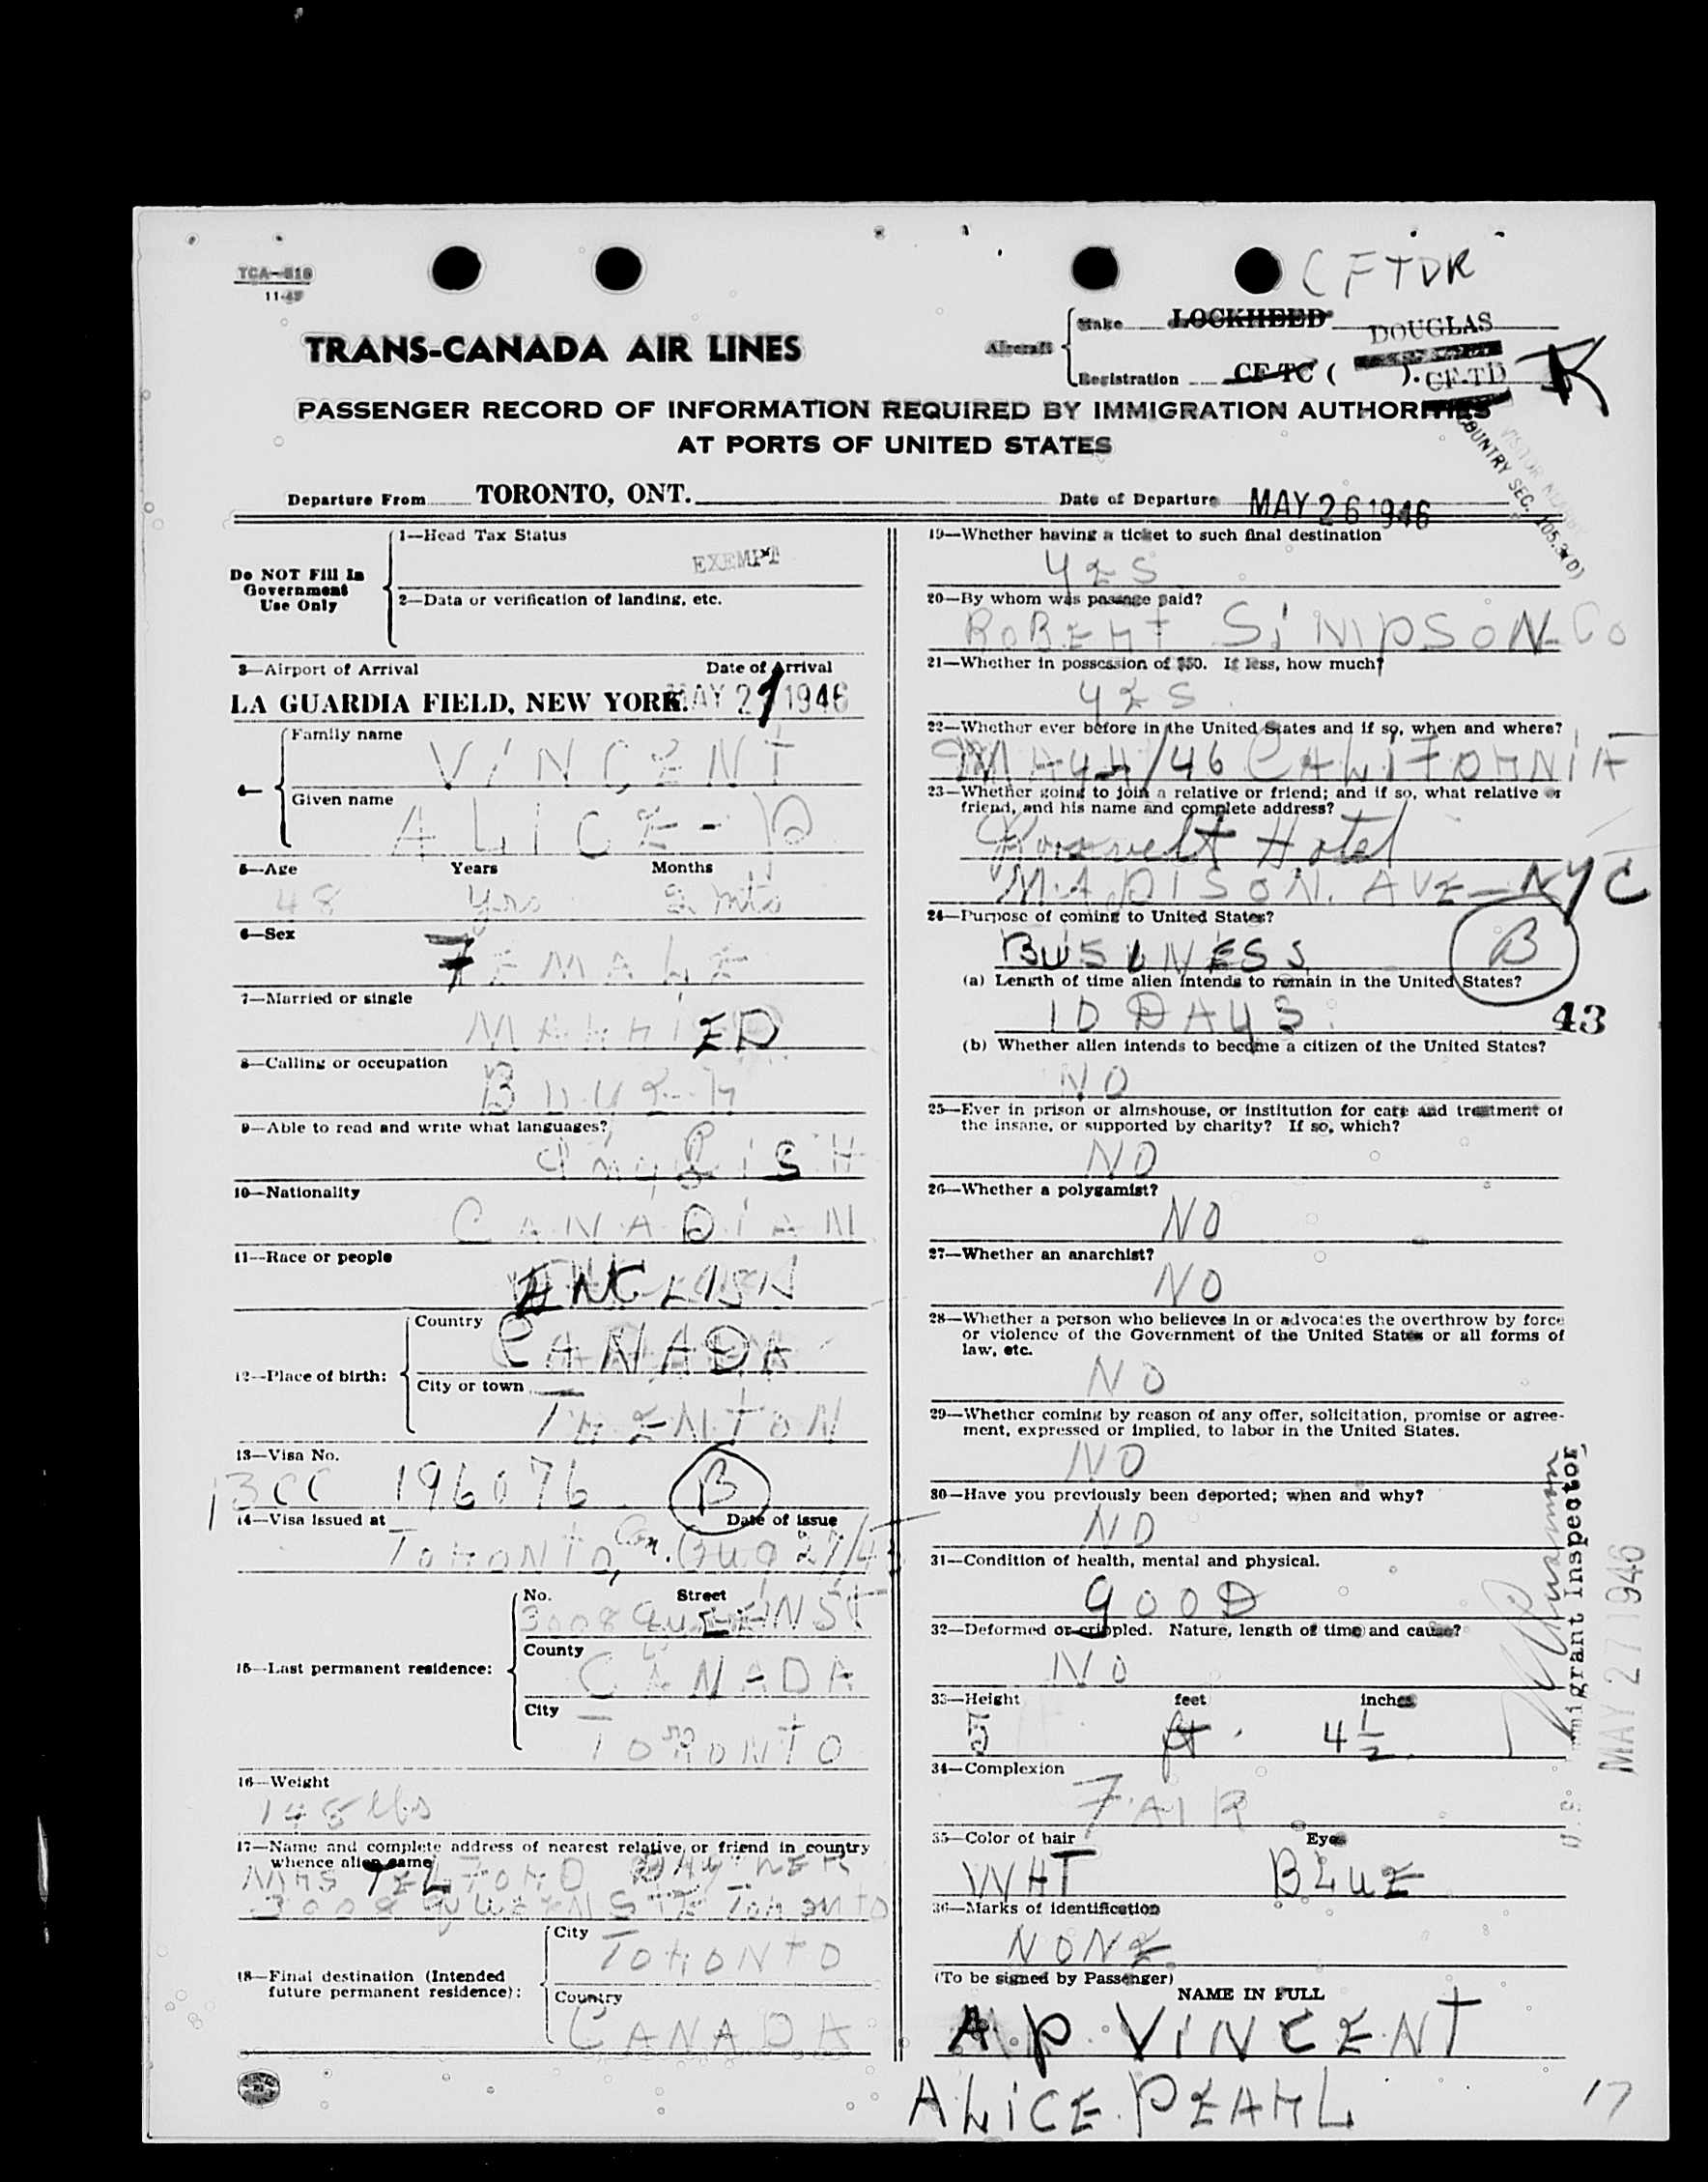 TCA-519
11-45
CFTDR
TRANS-CANADA AIR LINES
Aircraft
Make LOCKHEED DOUGLAS
Registration CF-TC ( ). CF-TD K
PASSENGER RECORD OF INFORMATION REQUIRED BY IMMIGRATION AUTHORITIES
AT PORTS OF UNITED STATES
COUNTRY SEC. 105.3(D)
Departure From TORONTO, ONT.
Date of Departure MAY 26 1946
Do NOT Fill In
Government
Use Only
1—Head Tax Status
EXEMPT
2—Data or verification of landing, etc.
3—Airport of Arrival Date of Arrival
LA GUARDIA FIELD, NEW YORK. MAY 27 1946
4—
Family name
VINCENT
Given name
ALICE - P
5—Age Years Months
48 Yrs 2 mts
6—Sex
FEMALE
7—Married or single
MARRIED
8—Calling or occupation
BUYER
9—Able to read and write what languages?
ENGLISH
10—Nationality
CANADIAN
11—Race or people
ENGLISH
12—Place of birth:
Country
CANADA
City or town
TRENTON
13—Visa No.
BCC 196076 B
14—Visa issued at Date of issue
TORONTO, Can. AUG 27/4
15—Last permanent residence:
No. Street
3008 QUEENST
County
CANADA
City
TORONTO
16—Weight
145 lbs
17—Name and complete address of nearest relative or friend in country
whence alien came
MRS TELFORD
3008 QUEEN ST E TORONTO
18—Final destination (Intended
future permanent residence):
City
TORONTO
Country
CANADA
19—Whether having a ticket to such final destination
YES
20—By whom was passage paid?
ROBERT SIMPSON Co
21—Whether in possession of $50. If less, how much?
YES
22—Whether ever before in the United States and if so, when and where?
MAY 4/46 CALIFORNIA
23—Whether going to join a relative or friend; and if so, what relative or
friend, and his name and complete address?
Roosevelt Hotel
MADISON. AVE - NYC
24—Purpose of coming to United States?
BUSINESS B
(a) Length of time alien intends to remain in the United States?
10 DAYS
43
(b) Whether alien intends to become a citizen of the United States?
NO
25—Ever in prison or almshouse, or institution for care and treatment of
the insane, or supported by charity? If so, which?
NO
26—Whether a polygamist?
NO
27—Whether an anarchist?
NO
28—Whether a person who believes in or advocates the overthrow by force
or violence of the Government of the United States or all forms of
law, etc.
NO
29—Whether coming by reason of any offer, solicitation, promise or agree-
ment, expressed or implied, to labor in the United States.
NO
30—Have you previously been deported; when and why?
NO
31—Condition of health, mental and physical.
GOOD
32—Deformed or crippled. Nature, length of time and cause?
NO
33—Height feet inches
5 ft. 4 1/2
34—Complexion
FAIR
35—Color of hair Eyes
WHT BLUE
36—Marks of identification
NONE
(To be signed by Passenger)
NAME IN FULL
A.P. VINCENT
ALICE. PEARL
17
U.S. Immigrant Inspector
MAY 27 1946